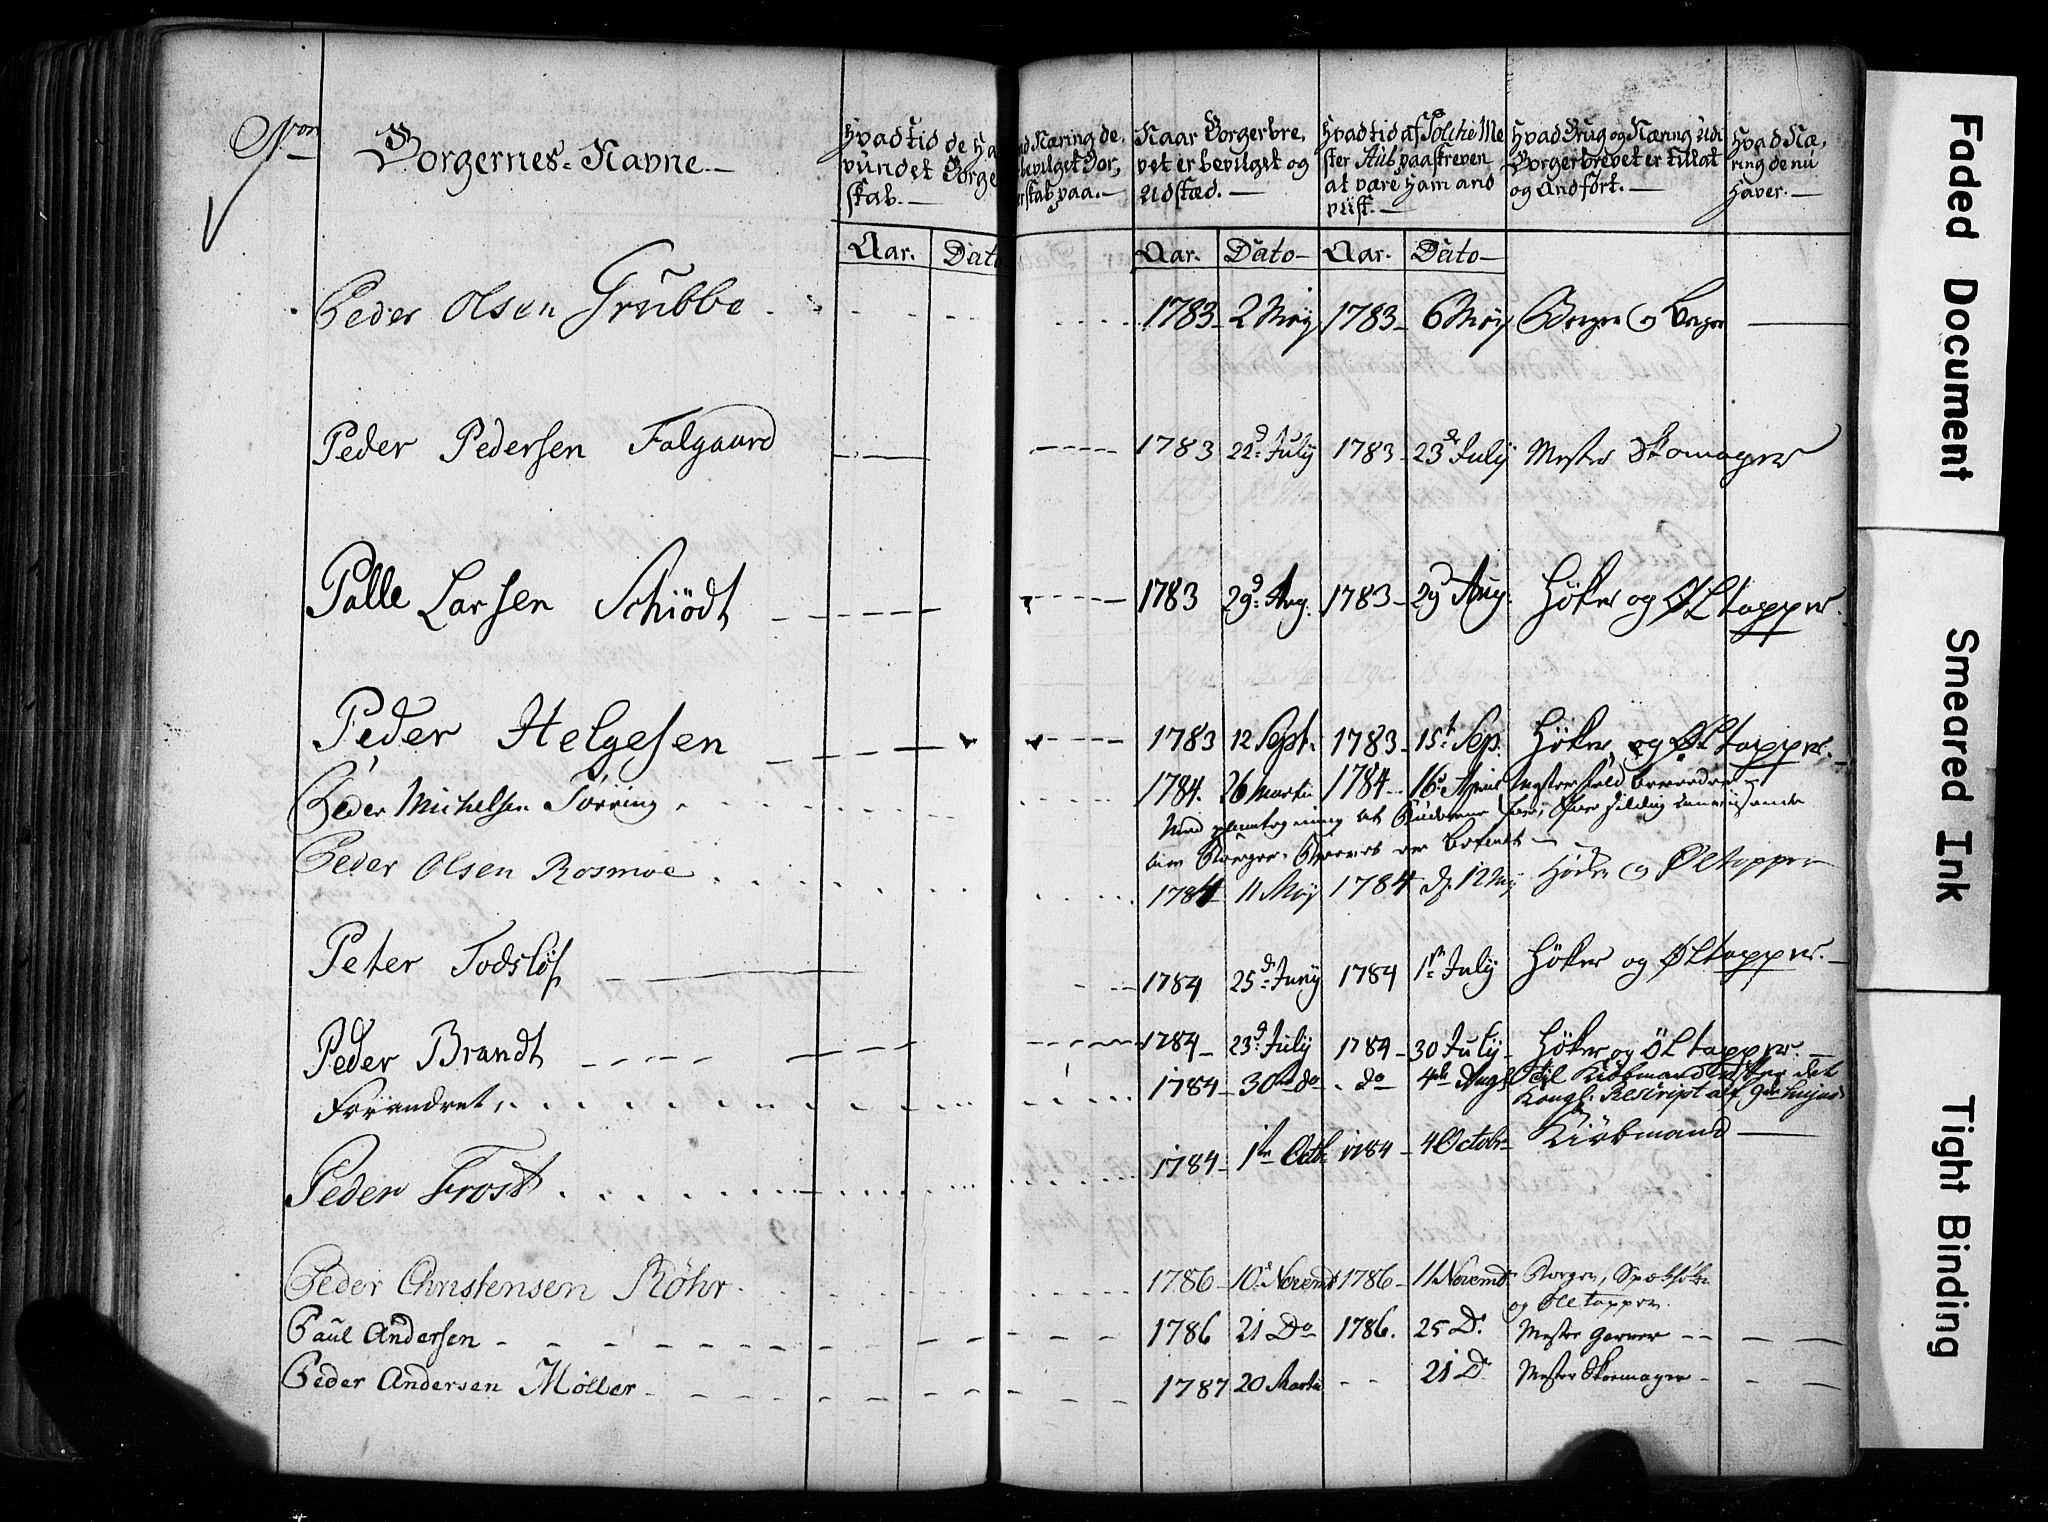 Nron
Borgernes Navne
Hvad tid de ha
vundet Borger
skab.
Aar. Dato
ad Næring de
bevilget Bor,
erskab paa.
Naar Borgerbre,
vet er bevilget og
udstæd.
Aar. Dato
Hvad tid af
ster paastreven
at være ham and
viist.
Aar. Dato
Hvad Brug og Næring udi
Borgerbrevet er tillat
og Andført.
Hvad Næ,
ring de nu
haver.
Peder Olsen Grubbe 1783 2 May 1783 6 May
Peder Pedersen Falgaard 1783 22d July 1783 23d July Mester Skomager
Palle Larsen Schiødt 1783 29d Aug. 1783 29d Aug. Høker og Øltapper.
Peder Helgesen 1783 12 Sept. 1783 15t Sep. Høker og Øltapper.
Peder Michelsen Tørring 1784. 26 Martii 1784 16d April
Peder Olsen Rosmoe 1784 11 May 1784 d. 12 May Høker og Øltapper
Peter Todsløf 1784 25d Juny 1784 1t July Høker og Øltapper.
Peder Brandt 1784 23d July 1784 30 July Høker og Øltapper.
Forandret 1784 30 do do 4de Aug. Til Kiøbmand efter det
Kongl. Rescript af 9de hujus
Peder Frost 1784 1te Octb. 1784 4 Octobr Kiøbmand
Peder Christensen Røhr 1786 10d Novemb 1786 11 Novemb
og Øltapper.
Paul Andersen 1786 21 Do 1786. 25 D. Mester Garver
Peder Andersen Møller 1787 20 Martii 21 D Mester Skoemager
Faded Document
Smeared Ink
Tight Binding